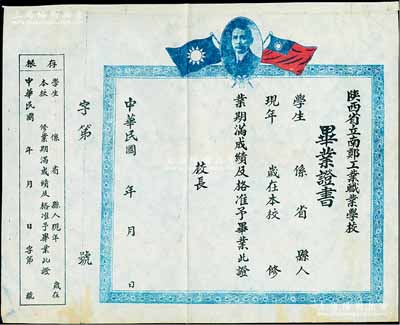 陝西省立南鄭工業職業學校
畢業證書
學生 係 省 縣人
現年 歲在本校 修
業期滿成績及格准予畢業此證
校長
中華民國 年 月 日
字第 號
存根
學生 係 省 縣人現年 歲在
本校 修業期滿成績及格准予畢業此證
中華民國 年 月 日 字第 號